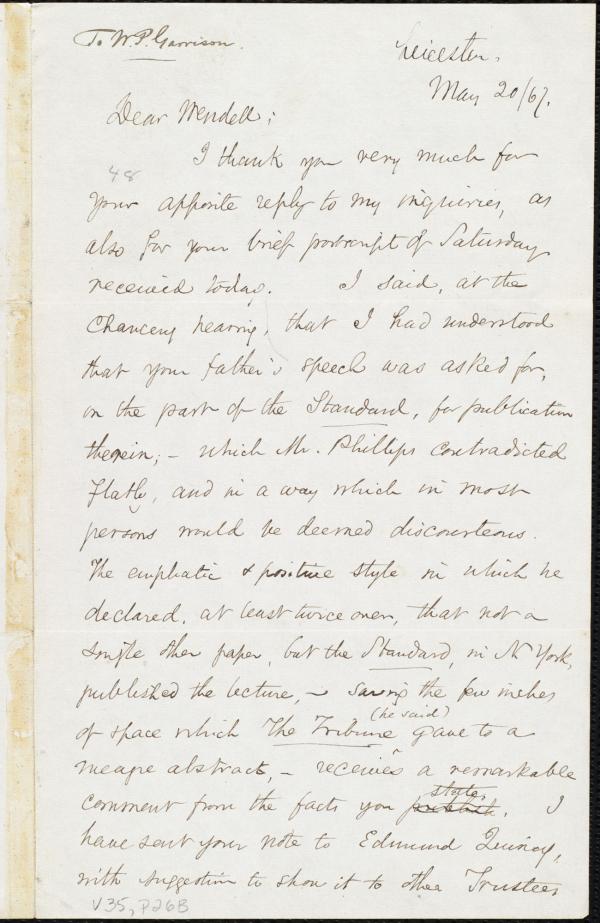 To W.P. Garrison.
Leicester,
May 20/67.
Dear Wendell;
I thank you very much for
48
your apposite reply to my inquiries, as
also for your brief postscript of Saturday
received today. I said, at the
Chancery hearing, that I had understood
that your father's speech was asked for,
on the part of the Standard, for publication
therein; – which Mr. Phillips contradicted
flatly, and in a way which in most
persons would be deemed discourteous.
The emphatic & positive style in which he
declared, at least twice over, that not a
single other paper, but the Standard, in N York,
published the lecture, – saving the few inches
of space which The Tribune (he said) gave to a
meagre abstract, – receives a remarkable
comment from the facts you publish state. I
have sent your note to Edmund Quincy,
with suggestion to show it to other Trustees
V35, P26B